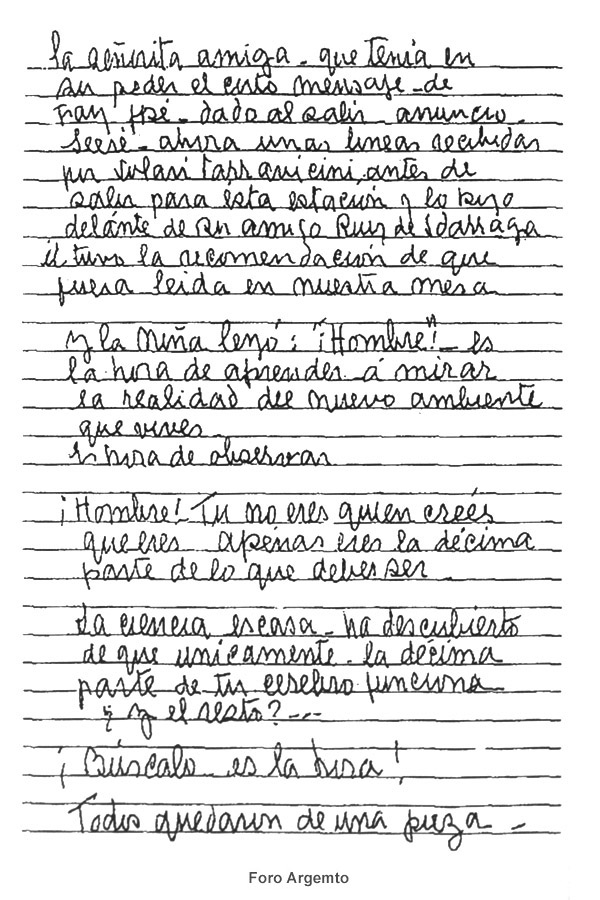 la señorita amiga - que tenia en
su poder el corto mensaje - de
Fray José - dado al salir anuncio -
Leeré - ahora unas lineas recibidas
por antes de
salir para esta estación y lo hizo
delánte de su amigo Ruiz de Idarrága
él tuvo la recomendación de que
fuera leida en nuestra mesa
y la Niña leyó: "¡Hombre"! - es
la hora de aprender á mirar
la realidad del nuevo ambiente
que vives -
Es hora de observar
¡Hombre! Tu no eres quien creés
que eres apénas eres la décima
parte de lo que debes ser -
La ciencia escasa - ha descubierto
de que unicamente - la décima
parte de tu cerebro funciona -
¿ y el resto? - - -
¡ Búscalo - es la hora !
Todos quedaron de una pieza -
Foro Argemto